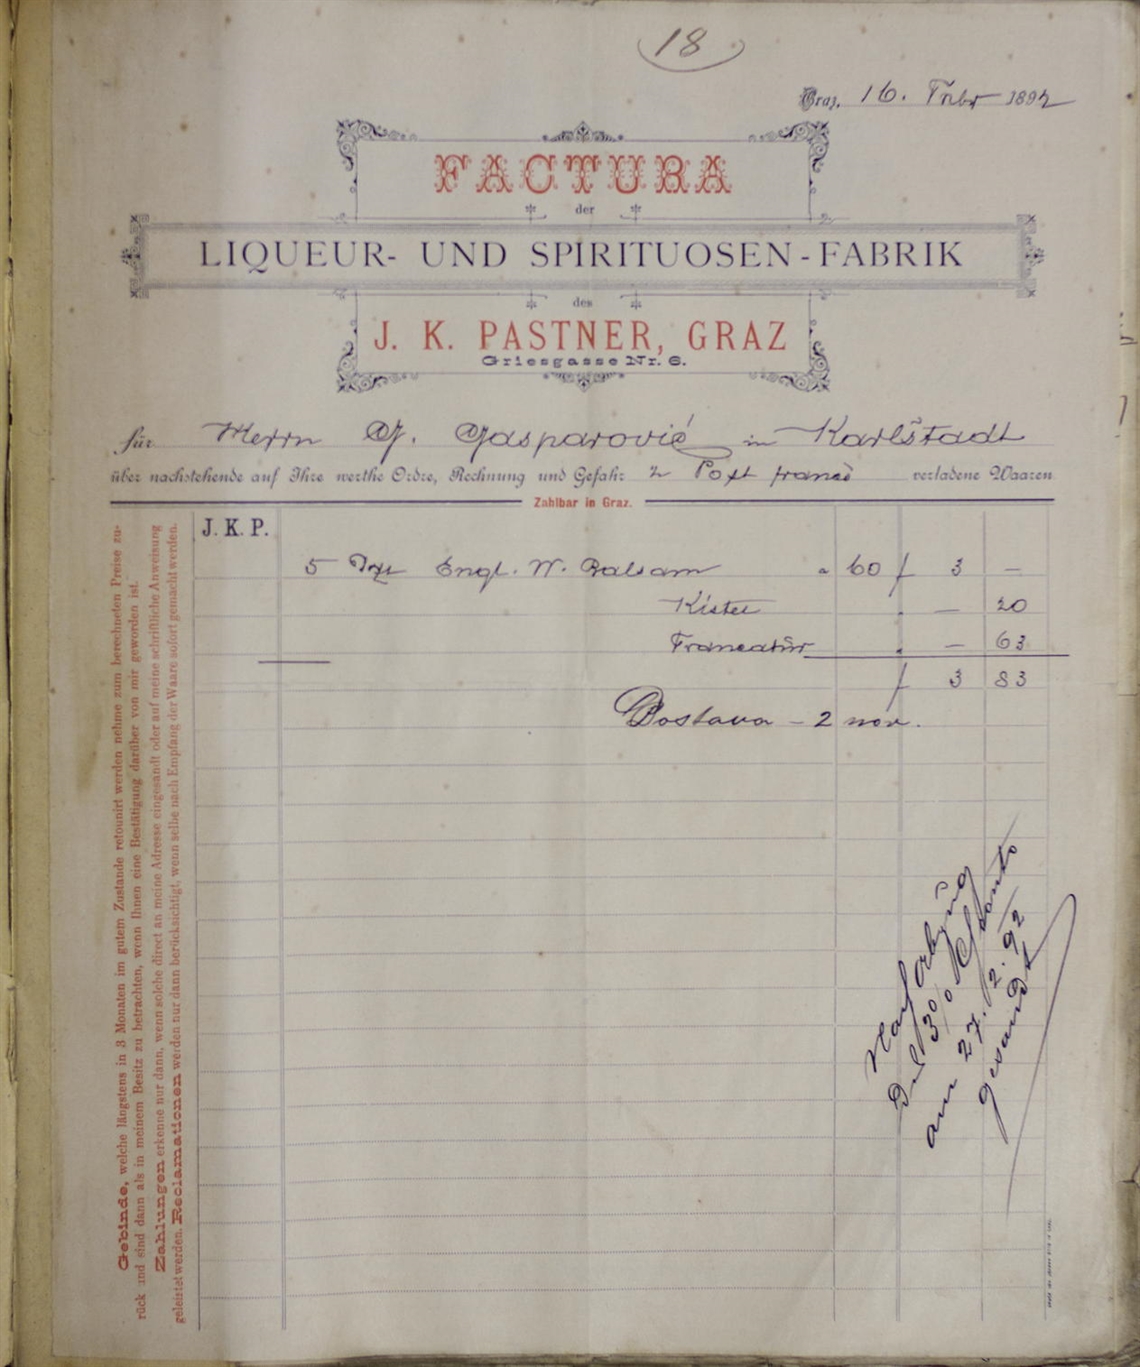 18
Graz, 16. 1892
FACTURA
der
LIQUEUR- UND SPIRITUOSEN-FABRIK
des
J. K. PASTNER, GRAZ
Griesgasse Nr. 6.
für Herrn G. Gasparović in Karlstadt
über nachstehende auf Ihre werthe Ordre, Rechnung und Gefahr Post franco verladene Waaren
Zahlbar in Graz.
J. K. P.
5 Engl. W. Balsam 60 f 3 —
Kistel — 20
Francatur — 63
f 3 83
Dostava - 2 nov.
3%
am 27. 12. 92
gesandt
Gebinde, welche längstens in 3 Monaten im gutem Zustande retounirt werden nehme zum berechneten Preise zu-
rück und sind dann als in meinem Besitz zu betrachten, wenn Ihnen eine Bestätigung darüber von mir geworden ist.
Zahlungen erkenne nur dann, wenn solche direct an meine Adresse eingesandt oder auf meine schriftliche Anweisung
geleistet werden. Reclamationen werden nur dann berücksichtigt, wenn selbe nach Empfang der Waare sofort gemacht werden.